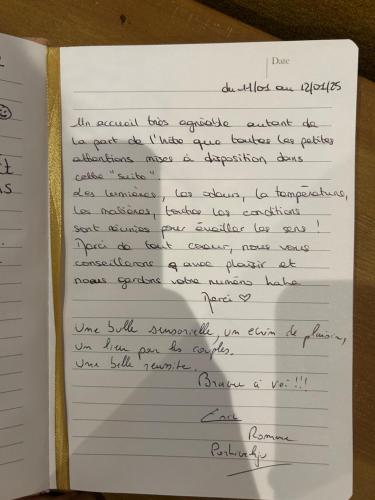 Date
du 11/01 au 12/01/25
Un accueil très agréable autant de
la part de l'hôte que toutes les petites
attentions mises à disposition dans
cette "suite".
Les lumières, les odeurs, la température,
les matières, toutes les conditions
sont réunies pour éveiller les sens !
Merci de tout coeur, nous vous
conseillerons avec plaisir et
nous gardons votre numéro haha
Merci ♡
Une bulle sensorielle, un écrin de plaisir,
un lieu pour les couples.
Une belle réussite.
Bravo à voi !!!
Romane